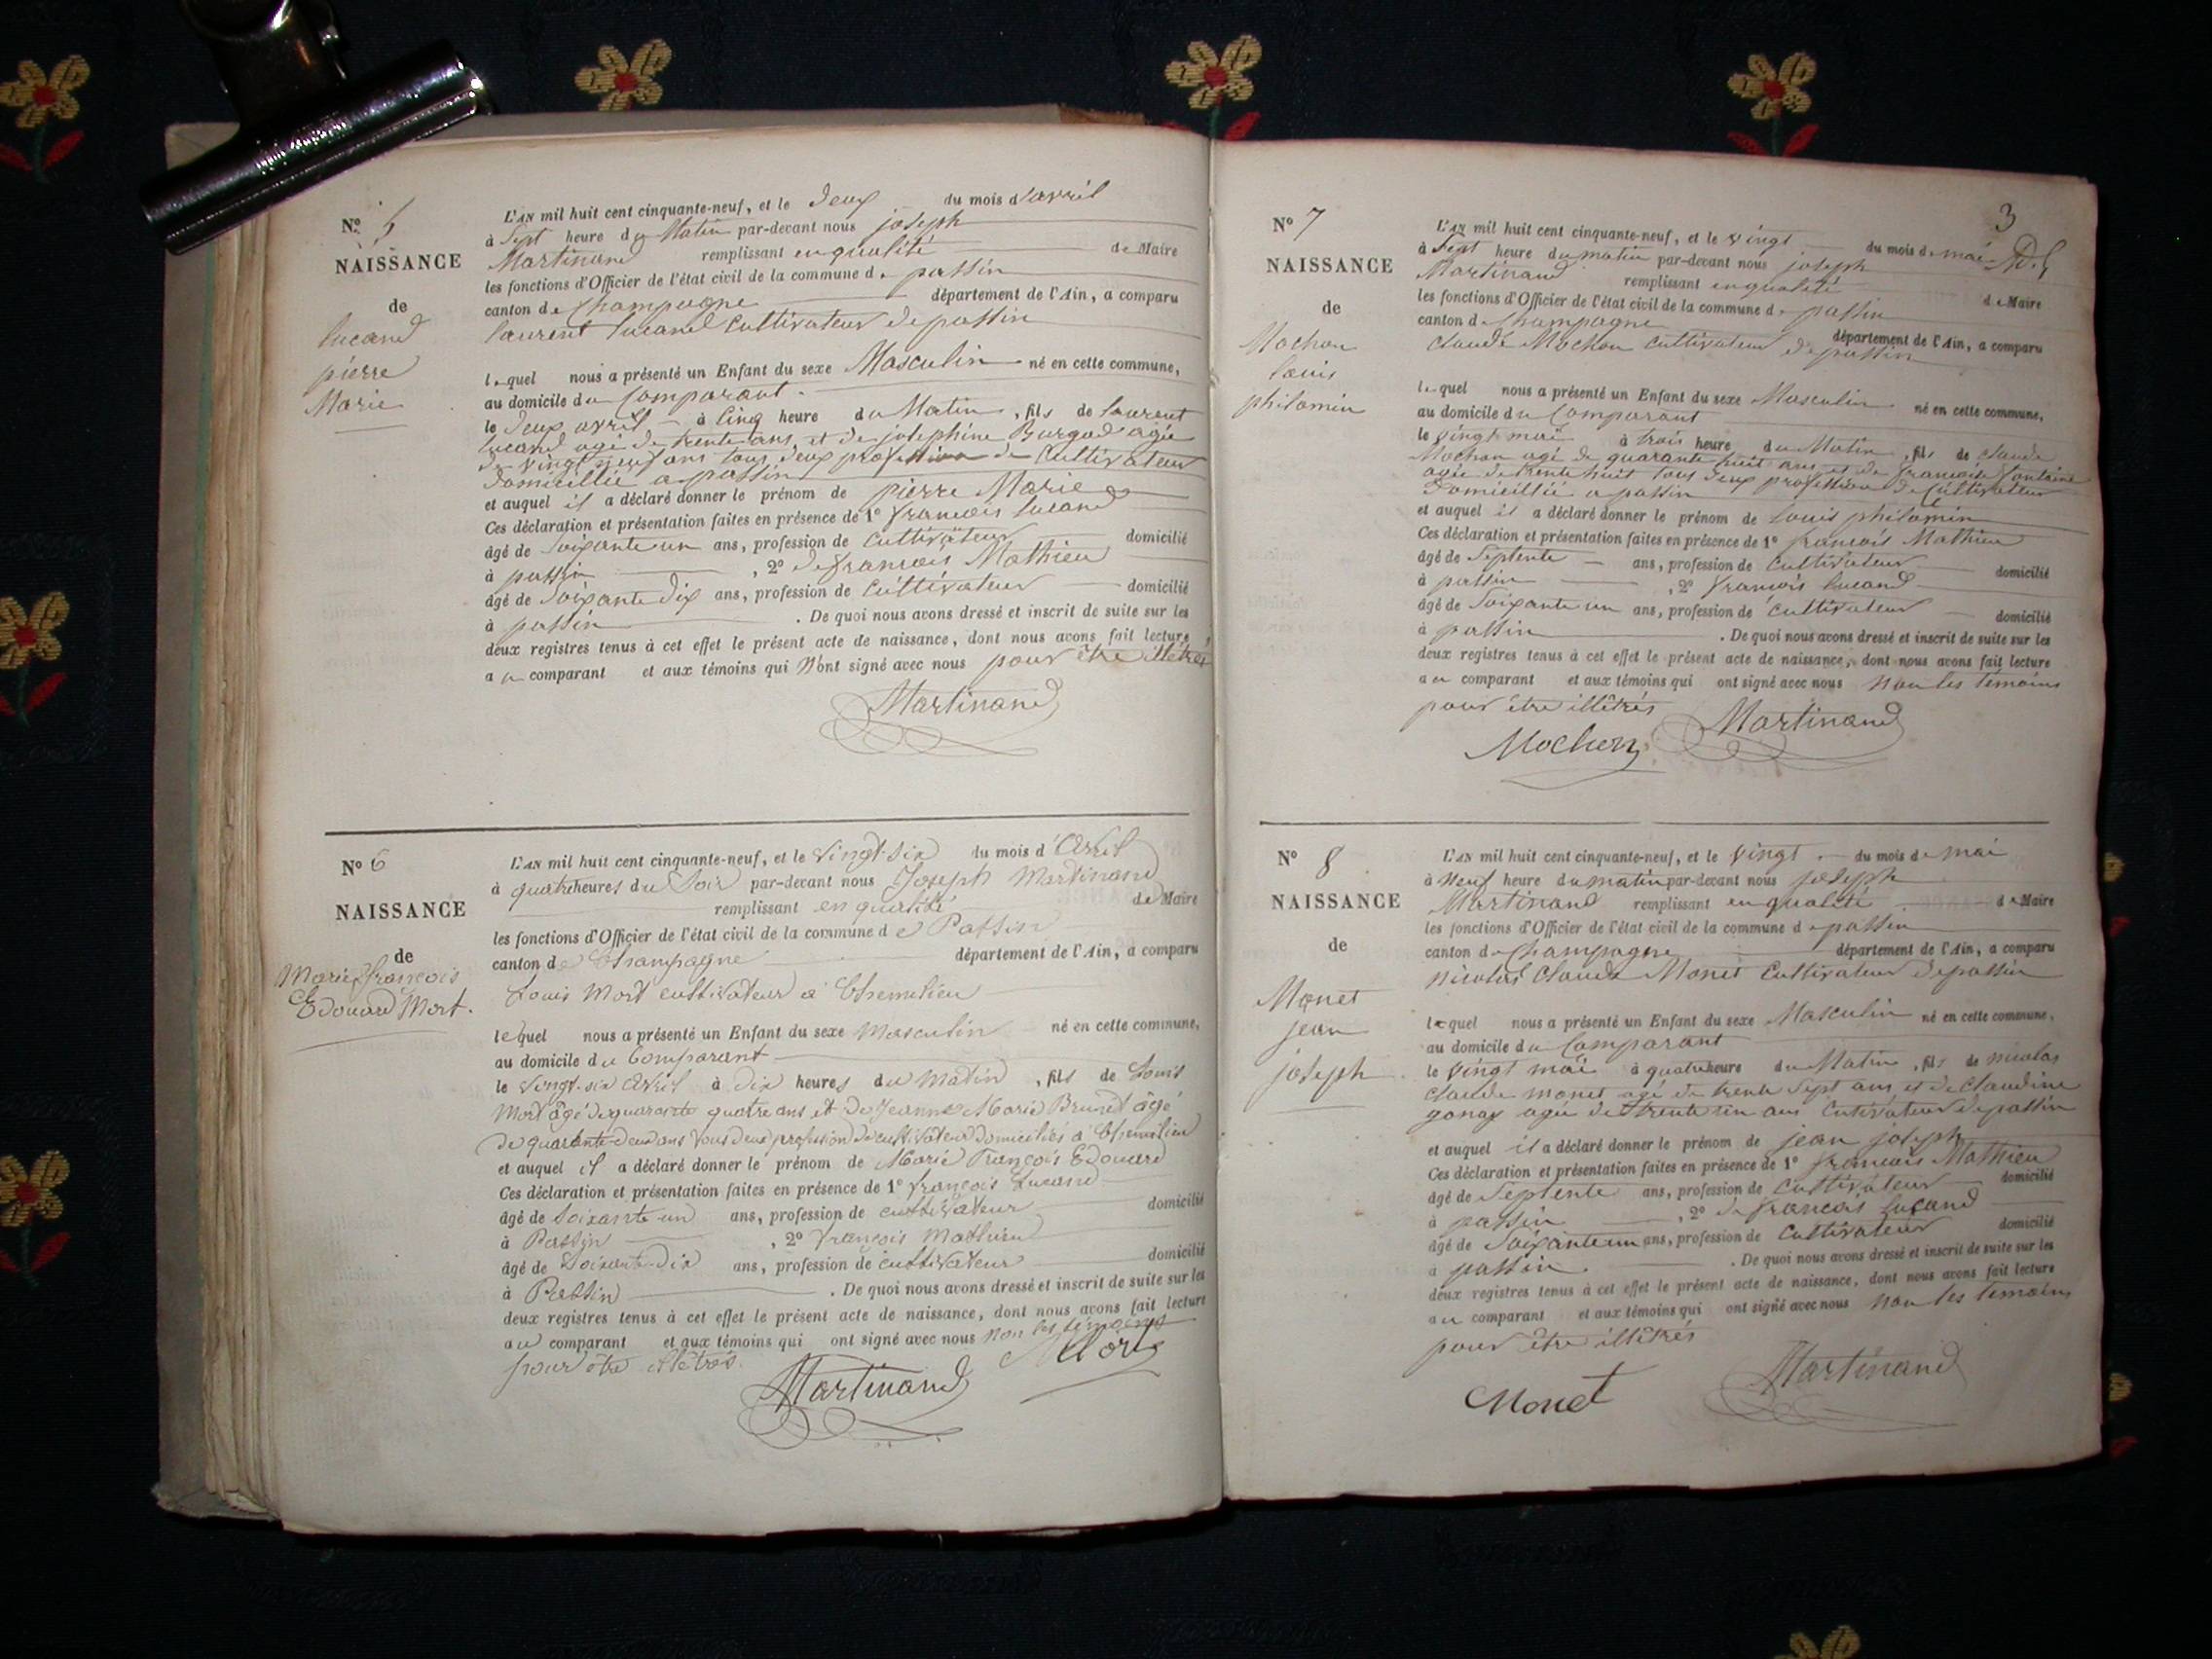 N° 5
NAISSANCE
de
lucand
pierre
Marie
L'AN mil huit cent cinquante-neuf, et le deux du mois d'avril
à Sept heure du Matin par-devant nous joseph
Martinand remplissant en qualité de Maire
les fonctions d'Officier de l'état civil de la commune de passin
canton de Champagne département de l'Ain, a comparu
laurent lucand Cultivateur de passin
lequel nous a présenté un Enfant du sexe Masculin né en cette commune,
au domicile du Comparant.
le deux avril à Cinq heure du Matin, fils de laurent
lucand agé de trente ans, et de josephine Burgod agée
de vingt neuf ans tous deux profession de Cultivateur
domicillié a passin
et auquel il a déclaré donner le prénom de pierre Marie
Ces déclaration et présentation faites en présence de 1° francois lucand
âgé de Soixante un ans, profession de Cultivateur domicilié
à passin, 2° de francois Mathieu
âgé de Soixante dix ans, profession de Cultivateur domicilié
à passin. De quoi nous avons dressé et inscrit de suite sur les
deux registres tenus à cet effet le présent acte de naissance, dont nous avons fait lecture
au comparant et aux témoins qui N'ont signé avec nous pour être illétrés
Martinand
N° 6
NAISSANCE
de
Marie françois
Edouard Mort.
L'AN mil huit cent cinquante-neuf, et le Vingt-six du mois d'Avril
à quatre heures du Soir par-devant nous Joseph Martinand
remplissant en qualité de Maire
les fonctions d'Officier de l'état civil de la commune de Passin
canton de Champagne département de l'Ain, a comparu
Louis Mort cultivateur à Chemilieu
lequel nous a présenté un Enfant du sexe Masculin né en cette commune,
au domicile du Comparant
le Vingt-six Avril à dix heures du Matin, fils de Louis
Mort âgé de quarante quatre ans et de Jeanne Marie Brunet âgé
de quarante deux ans tous deux profession de cultivateur domiciliés à Chemilieu
et auquel il a déclaré donner le prénom de Marie François Edouard
Ces déclaration et présentation faites en présence de 1° françois Lucand
âgé de Soixante un ans, profession de cultivateur domicilié
à Passin, 2° françois Mathieu
âgé de Soixante-dix ans, profession de cultivateur domicilié
à Passin. De quoi nous avons dressé et inscrit de suite sur les
deux registres tenus à cet effet le présent acte de naissance, dont nous avons fait lecture
au comparant et aux témoins qui ont signé avec nous non les témoins
pour être illétrés.
Martinand Mort
3
N° 7
NAISSANCE
de
Mochon
louis
philomin
L'AN mil huit cent cinquante-neuf, et le vingt du mois de mai
à Sept heure du matin par-devant nous joseph
Martinand remplissant en qualité de Maire
les fonctions d'Officier de l'état civil de la commune de passin
canton de Champagne département de l'Ain, a comparu
Claude Mochon Cultivateur de passin
lequel nous a présenté un Enfant du sexe Masculin né en cette commune,
au domicile du Comparant
le vingt mai à trois heure du Matin, fils de Claude
Mochon agé de quarante huit ans et de francoise fontaine
agée de trente huit tous deux profession de Cultivateur
domicillié a passin
et auquel il a déclaré donner le prénom de louis philomin
Ces déclaration et présentation faites en présence de 1° francois Mathieu
âgé de Septente ans, profession de Cultivateur domicilié
à passin, 2° francois lucand
âgé de Soixante un ans, profession de Cultivateur domicilié
à passin. De quoi nous avons dressé et inscrit de suite sur les
deux registres tenus à cet effet le présent acte de naissance, dont nous avons fait lecture
au comparant et aux témoins qui ont signé avec nous Non les témoins
pour être illétrés
Mochon Martinand
N° 8
NAISSANCE
de
Monet
jean
joseph
L'AN mil huit cent cinquante-neuf, et le vingt du mois de mai
à Neuf heure du matin par-devant nous joseph
Martinand remplissant en qualité de Maire
les fonctions d'Officier de l'état civil de la commune de passin
canton de Champagne département de l'Ain, a comparu
nicolas Claude Monet Cultivateur de passin
lequel nous a présenté un Enfant du sexe Masculin né en cette commune,
au domicile du Comparant
le vingt mai à quatre heure du Matin, fils de nicolas
Claude monet agé de trente Sept ans et de Claudine
gonay agée de trente un ans Cutivateur de passin
et auquel il a déclaré donner le prénom de jean joseph
Ces déclaration et présentation faites en présence de 1° francois Mathieu
âgé de Septente ans, profession de Cultivateur domicilié
à passin, 2° de francois lucand
âgé de Soixante un ans, profession de Cultivateur domicilié
à passin. De quoi nous avons dressé et inscrit de suite sur les
deux registres tenus à cet effet le présent acte de naissance, dont nous avons fait lecture
au comparant et aux témoins qui ont signé avec nous Non les témoins
pour être illétrés
Monet Martinand